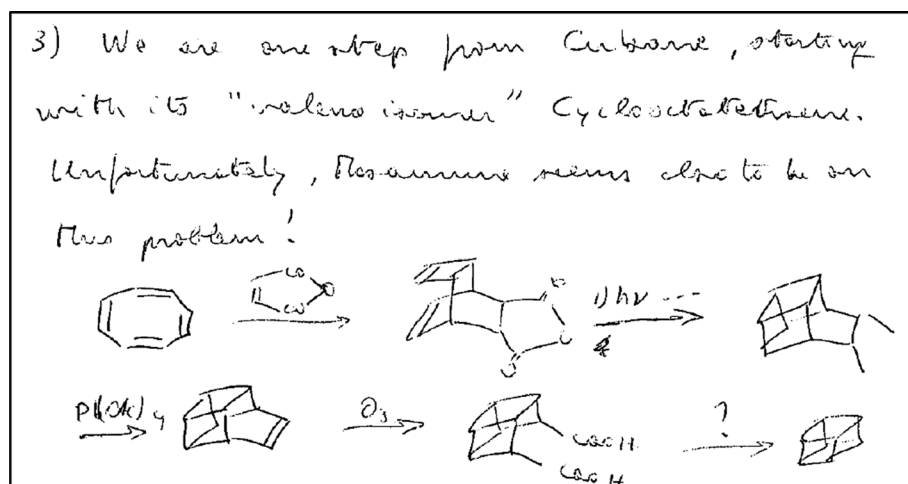 3) We are one step from Cubane, starting
with its "valence isomer" Cyclooctatetraene.
Unfortunately, Masamune seems also to be on
this problem!
CO O CO O 1) hν ---
O O
Pb(OAc)4 O3 COOH ?
COOH